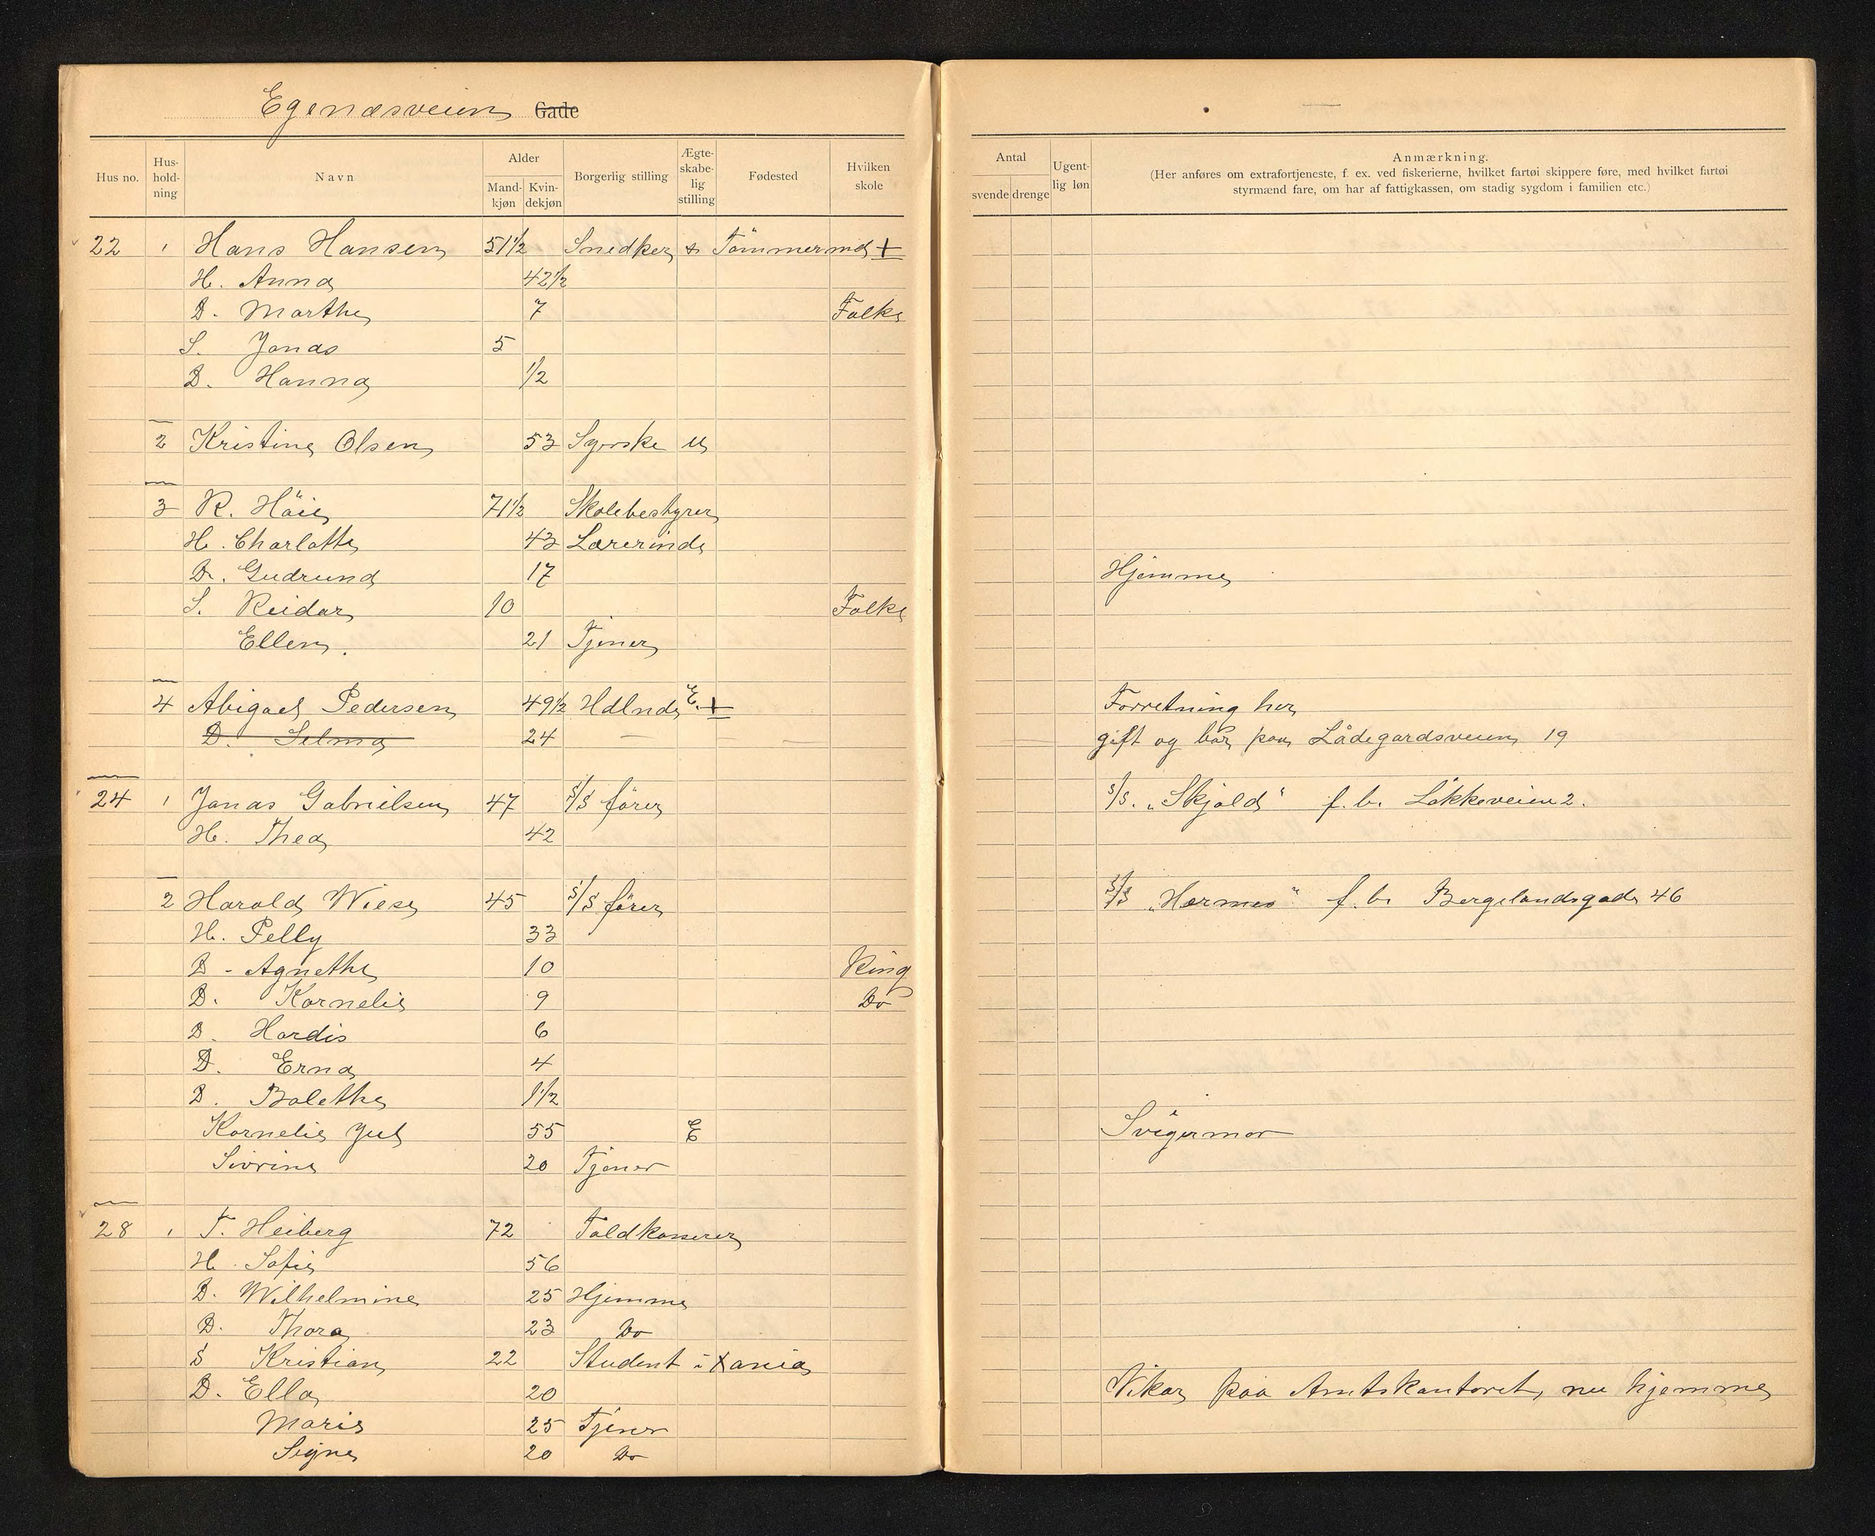 Egenæsveien Gade
Hus no. Hus-hold-ning Navn Alder Mand-kjøn Kvin-dekjøn Borgerlig stilling Ægte-skabe-lig stilling Fødested Hvilken skole
Antal svende drenge Ugent-lig løn Anmærkning.
(Her anføres om extrafortjeneste, f. ex. ved fiskerierne, hvilket fartøi skippere føre, med hvilket fartøi
styrmænd fare, om har af fattigkassen, om stadig sygdom i familien etc.)
22 1 Hans Hansen 51½ Snedker & Tömmermd +
H. Anna 42½
D. Marthe 7 Folke
S. Jonas 5
D. Hanna ½
2 Kristine Olsen 53 Syerske U
3 R. Höie 71½ Skolebestyrer
H. Charlotte 43 Lærerinde
D. Gudrund 17 Hjemme
S. Reidar 10 Folke
Ellen. 21 Tjener
4 Abigael Pedersen 49½ Hdlnde E. + Forretning her
D. Selma 24 — — gift og bor paa Lådegardsveien 19
24 1 Jonas Gabrielsen 47 S/S förer S/S. "Skjold" f. b. Lökkeveien 2.
H. Thea 42
2 Harald Wiese 45 S/S förer S/S "Hærmes" f. b. Bergelandsgade 46
H. Pelly 33
D - Agnethe 10 Ring
D. Kornelie 9 Do
D. Hardis 6
D. Erna 4
D. Bolethe 1½
Kornelie Juel 55 E Svigermor
Sivrine 20 Tjener
28 1 T. Heiberg 72 Toldkasserer
H. Sofie 56
D. Wilhelmine 25 Hjemme
D. Thora 23 Do
S Kristian 22 Student i Xania
D. Ella 20 Vikar paa Amtskontoret, nu hjemme
Marie 25 Tjener
Signe 20 Do